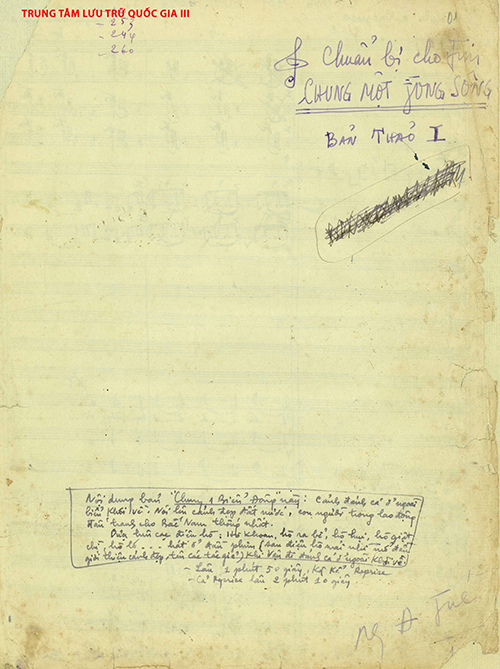 TRUNG TÂM LƯU TRỮ QUỐC GIA III
- 259
- 244
- 260
01
Chuẩn bị cho fim
CHUNG MỘT JÒNG SÔNG
BẢN THẢO I
Nội dung bản "Chung 1 Biển Đông" này: Cảnh đánh cá ở ngoài
biển khơi về. Nói lên cảnh đẹp đất nước, con người trong lao động
đấu tranh cho Bắc Nam thống nhất.
Dựa trên các điệu hò: Hò khoan, hò ra bể, hò hụi, hò giật
chì, hò lơ ... hát ở đầu phim (sau điệu hò mái nhì mở đầu
giới thiệu cảnh đẹp, tên các tác giả) Khi Vận đi đánh cá ở ngoài khơi về
- Lần 1 phút 50 giây, kể cả Reprise
- Cả Reprise lần 2 phút 10 giây
Ng A